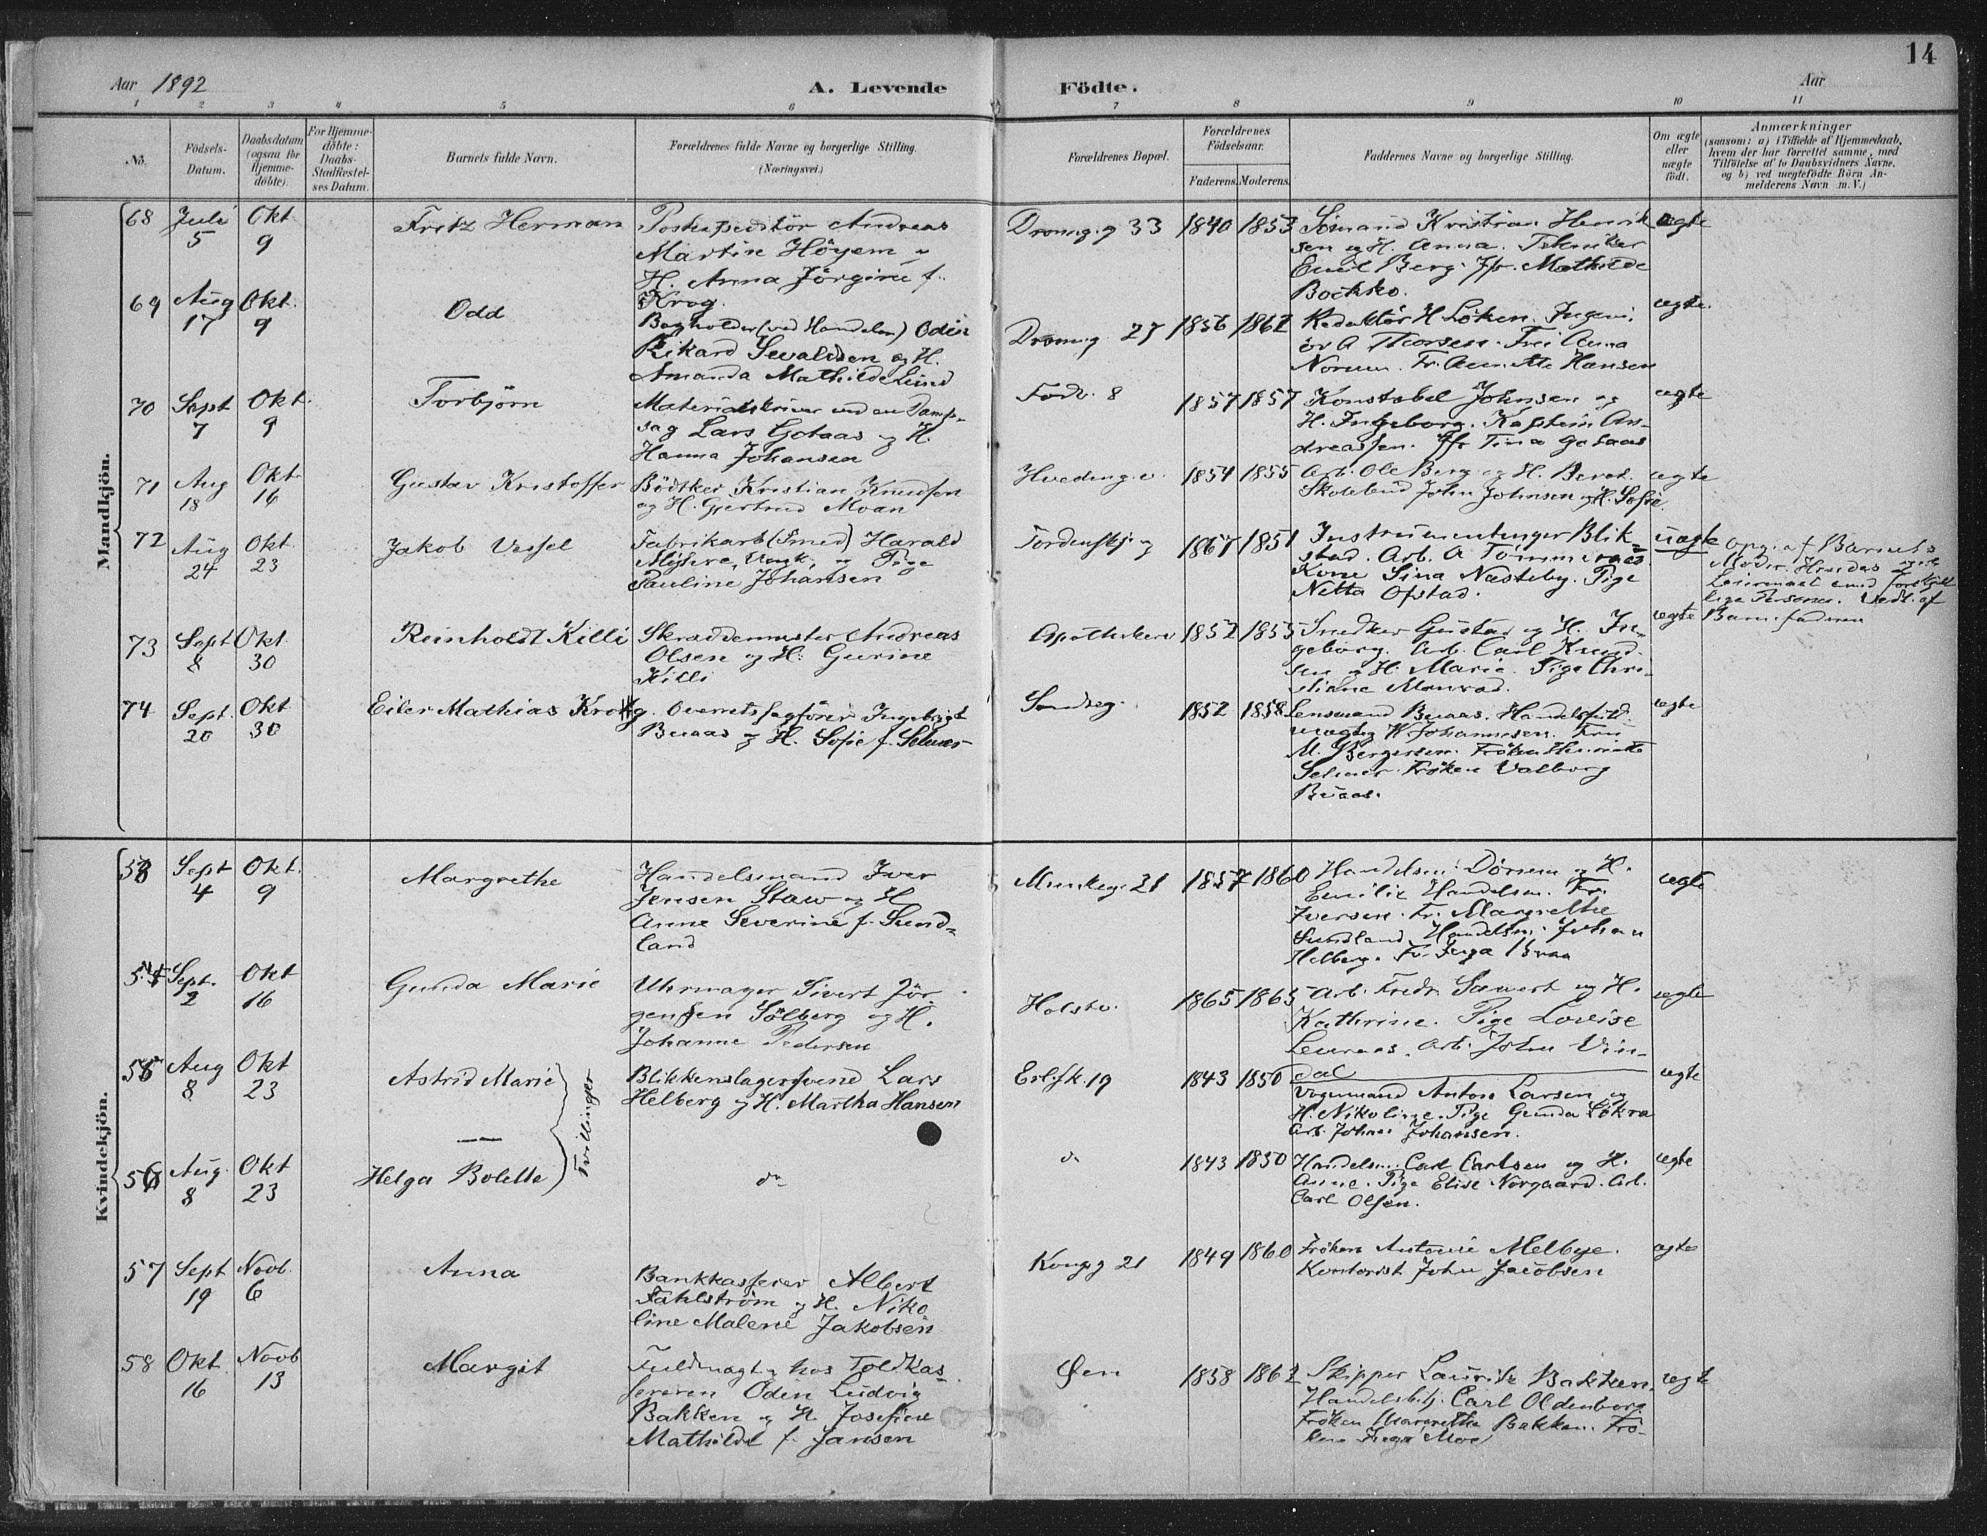 14
Aar 1892
A. Levende Födte.
Aar
1 2 3 4 5 6 7 8 9 10 11
No.
Födsels-Datum.
Daabsdatum (ogsaa for Hjemme-döbte).
For Hjemme-döbte: Daabs-Stadfæstel-ses Datum.
Barnets fulde Navn.
Forældrenes fulde Navne og borgerlige Stilling. (Næringsvei.)
Forældrenes Bopæl.
Forældrenes Födselsaar.
Faderens. Moderens.
Faddernes Navne og borgerlige Stilling.
Om ægte eller uægte födt.
Anmærkninger
(saasom: a) i Tilfælde af Hjemmedaab, hvem der har forrettet samme, med Tilföielse af to Daabsvidners Navne, og b) ved uægtefödte Börn An-melderens Navn m. V.)
Mandkjön.
68 Juli 5 Okt 9 Fritz Herman
Postexpeditör Andreas
Martin Höyem og
H. Anna Jörgine f.
Krog.
Dronng. g 33 1840 1853
Sömand Kristian Henrik
sen og H. Anna. Tekniker
Emil Berg. Jfr. Mathilde
Bochko.
ægte
69 Aug 17 Okt. 9 Odd
Bogholder (ved Handelen) Odin
Rikard Sevaldsen og H.
Amanda Mathilde Lund
Dronng. 27 1856 1862
Redaktör H Löken. Ingeni
ör A Thorsen. Frk Anna
Norum. Fr. Annette Hansen
ægte
70 Sept 7 Okt. 9 Torbjörn
Materialskriver ved en Damp-
sag Lars Gotaas og H.
Hanna Johansen
Fodv. 8 1857 1857
Konstabel Johnsen og
H. Ingeborg. Kaptein An-
dreassen. Jfr Tina Gotaas
ægte
71 Aug 18 Okt 16 Gustav Kristoffer
Bödtker Kristian Knudsen
og H. Gjertrud Moan
Hvedingsv. 1854 1855
Arb. Ole Berg og H. Beret.
Skolebud John Johnsen og H. Sofie.
ægte
72 Aug 24 Okt. 23 Jakob Vessel
Fabrikarb (Smed) Harald
Pige
Pauline Johansen
Tordenskj. g 1867 1851
Instrumentmager Blik-
stad. Arb. A Tömmeraas
Kone Sina Næsteby. Pige
Netta Ofstad.
uægte
Opg. af Barnets
Moder. Hendes
Leiermaal med forskjel
lige Personer. Vedt. af
Barnefaderen
73 Sept 8 Okt. 30 Reinholdt Killi
Skræddermester Andreas
Olsen og H. Gurine
Killi
Apothekerv 1852 1855
Snedker Gustad og H. In-
geborg. Arb. Carl Knud-
sen og H. Marie. Pige Chri-
stiane Monrad.
ægte
74 Sept. 20 Okt 30 Eiler Mathias Krog
Overretssagförer Ingebrigt
Buaas og H. Sofie f. Selmer
Sandveg. 1852 1858
Lensmand Buaas. Handelsfuld-
mægtig W. Johannesen. Fru
M. Bergersen. Fröken Henriette
Selmer. Fröken Valborg
Buaas.
ægte
Kvindekjön.
53 Sept 4 Okt. 9 Margrethe
Handelsmand Iver
Jensen Staw og H
Anne Severine f. Sund-
land
Munkeg. 21 1857 1860
Handelsm. Dörsem og H.
Emilie Handelsm. Fr.
Iversen. Fr. Margrethe
Sundland. Handelsm. Johan
Helberg. Fr. Inga Braa
ægte
54 Sept. 2 Okt 16 Gunda Marie
Uhrmager Sivert Jör
gensen Sölberg og H.
Johanne Pedersen
Holstv. 1865 1865
Arb. Fredr. Sawert og H.
Kathrine. Pige Lovise
Leuraas. Arb. John Vin-
dal
ægte
55 Aug 8 Okt 23 Astrid Marie
Tvillinger
Blikkenslagersvend Lars
Helberg og H. Martha Hansen
Erl.sk. 19 1843 1850
Vognmand Anton Larsen og
H. Nikoline. Pige Gunda Lökra
Arb. Johan Johansen.
ægte
56 Aug. 8 Okt 23 Helga Bolette
do
do 1843 1850
Handelsm. Carl Carlsen og H.
Anne. Pige Elise Norgaard. Arb.
Carl Olsen.
ægte
57 Sept 19 Novb. 6 Anna
Bankkasserer Albert
Fahlström og H. Niko
line Malene Jakobsen
Kongsg 21 1849 1860
Fröken Antonie Melbye.
Kontorist John Jacobsen
ægte
58 Okt. 16 Novb 13 Margit
Fuldmægtig hos Toldkas-
sereren Odin Ludvig
Bakken og H. Josefine
Mathilde f. Jansen
Øen 1858 1862
Skipper Laurits Bakken,
Handelsbtj. Carl Oldenborg
Fröken Margrethe Bakken. Frö-
ken Inga Moe
ægte